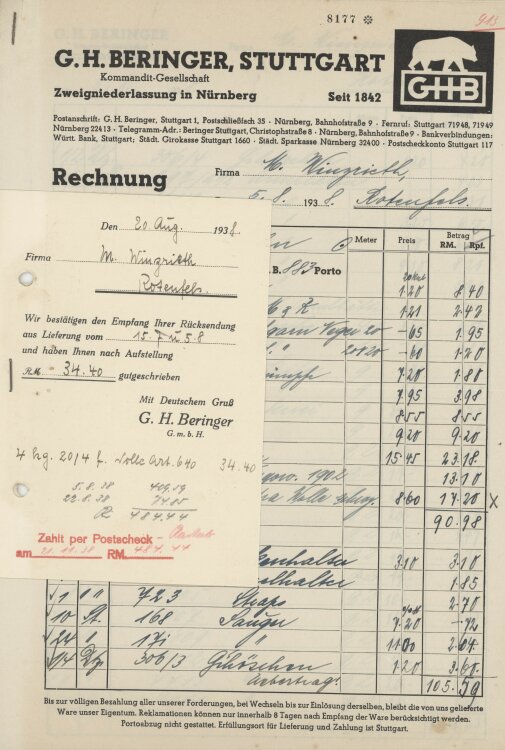 8177 ※
913
G. H. BERINGER, STUTTGART
Kommandit-Gesellschaft
Zweigniederlassung in Nürnberg Seit 1842
GHB
Postanschrift: G. H. Beringer, Stuttgart 1, Postschließfach 35 · Nürnberg, Bahnhofstraße 9 · Fernruf: Stuttgart 71948, 71949
Nürnberg 22413 · Telegramm-Adr.: Beringer Stuttgart, Christophstraße 8 · Nürnberg, Bahnhofstraße 9 · Bankverbindungen:
Württ. Bank, Stuttgart; Städt. Girokasse Stuttgart 1660 · Städt. Sparkasse Nürnberg 32400 · Postscheckkonto Stuttgart 117
Rechnung
Firma M. Winzrieth,
5.8. 1938 Rotenfels.
Den 20 Aug. 1938.
Firma M. Winzrieth
Rotenfels.
Wir bestätigen den Empfang Ihrer Rücksendung
aus Lieferung vom 15.7 u 5.8
und haben Ihnen nach Aufstellung
RM. 34.40 gutgeschrieben
Mit Deutschem Gruß
G. H. Beringer
G. m. b. H.
4 kg. 20/4 f. Wolle Art. 640 34.40
5.8.38
22.8.38
484.44
Zahlt per Postscheck
am RM. 484.44
Meter Preis Betrag
RM. Rpf.
B. 883 Porto
1.20 8.40
1.21 2.42
20 -65 1.95
-60 1.20
7.20 1.80
7.95 3.98
8.55 8.55
9.20 9.20
15.45 23.18
1902 13.10
Wolle 8.60 17.20 X
90.98
halter 3.10 3.10
halter 1.85
1 " 723 Straps 2.70
10 St. 168 Sauger 7.20 -.72
24 " 171 " 11.00
306/3 Guhöschen 1.20
Uebertrag: 105.59
Bis zur völligen Bezahlung aller unserer Forderungen, bei Wechseln bis zur Einlösung derselben, bleibt die von uns gelieferte
Ware unser Eigentum. Reklamationen können nur innerhalb 8 Tagen nach Empfang der Ware berücksichtigt werden.
Portoabzug nicht gestattet. Erfüllungsort für Lieferung und Zahlung ist Stuttgart.